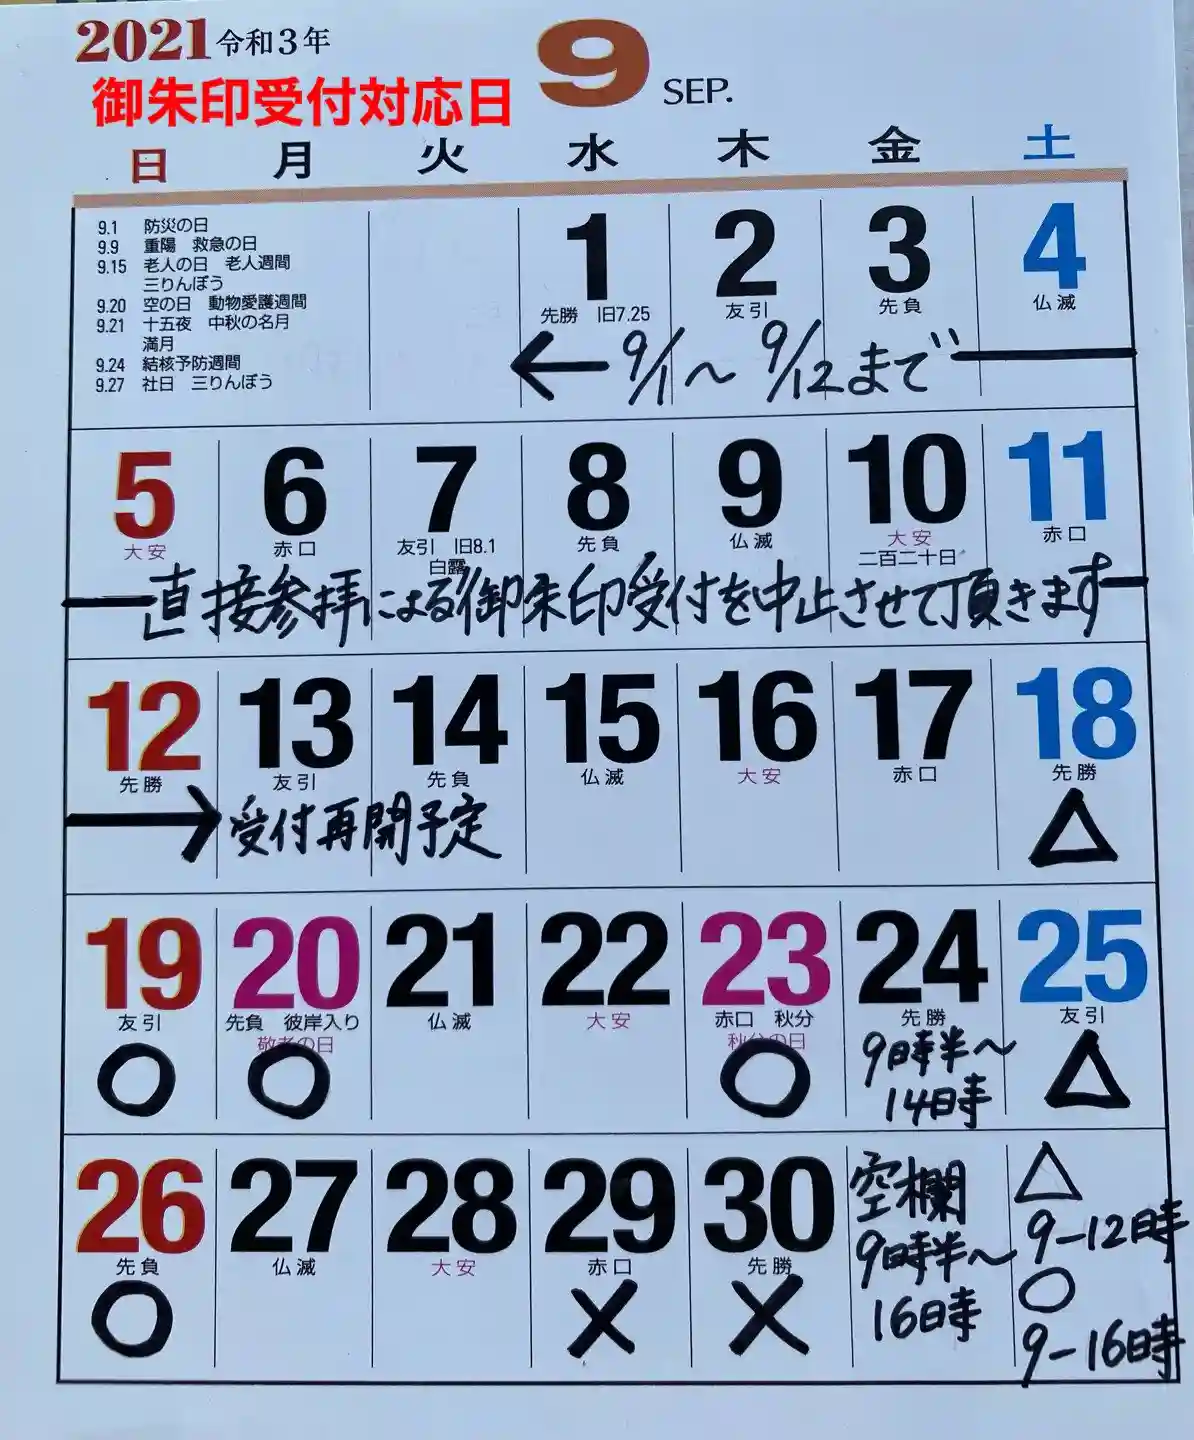 2021 令和3年
9 SEP.
御朱印受付対応日
日 月 火 水 木 金 土
9.1 防災の日
9.9 重陽 救急の日
9.15 老人の日 老人週間
三りんぼう
9.20 空の日 動物愛護週間
9.21 十五夜 中秋の名月
満月
9.24 結核予防週間
9.27 社日 三りんぼう
1 2 3 4
先勝 旧7.25 友引 先負 仏滅
9/1〜9/12まで
5 6 7 8 9 10 11
大安 赤口 友引 旧8.1 先負 仏滅 大安 赤口
白露 二百二十日
直接参拝による御朱印受付を中止させて頂きます
12 13 14 15 16 17 18
先勝 友引 先負 仏滅 大安 赤口 先勝
受付再開予定 △
19 20 21 22 23 24 25
友引 先負 彼岸入り 仏滅 大安 赤口 秋分 先勝 友引
敬老の日 秋分の日
○ ○ ○ 9時半〜 △
14時
26 27 28 29 30
先負 仏滅 大安 赤口 先勝
○ × ×
空欄
9時半〜
16時
△
9-12時
○
9-16時